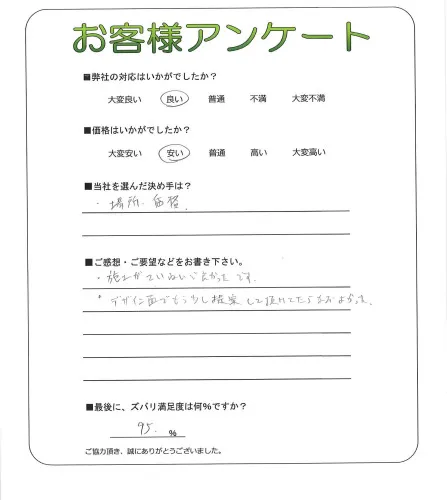 お客様アンケート
■弊社の対応はいかがでしたか？
大変良い 良い 普通 不満 大変不満
■価格はいかがでしたか？
大変安い 安い 普通 高い 大変高い
■当社を選んだ決め手は？
・場所、価格
■ご感想・ご要望などをお書き下さい。
・施工がていねいでよかったです。
・デザイン面でもう少し提案して頂けてたらなおよかった。
■最後に、ズバリ満足度は何%ですか？
95. %
ご協力頂き、誠にありがとうございました。